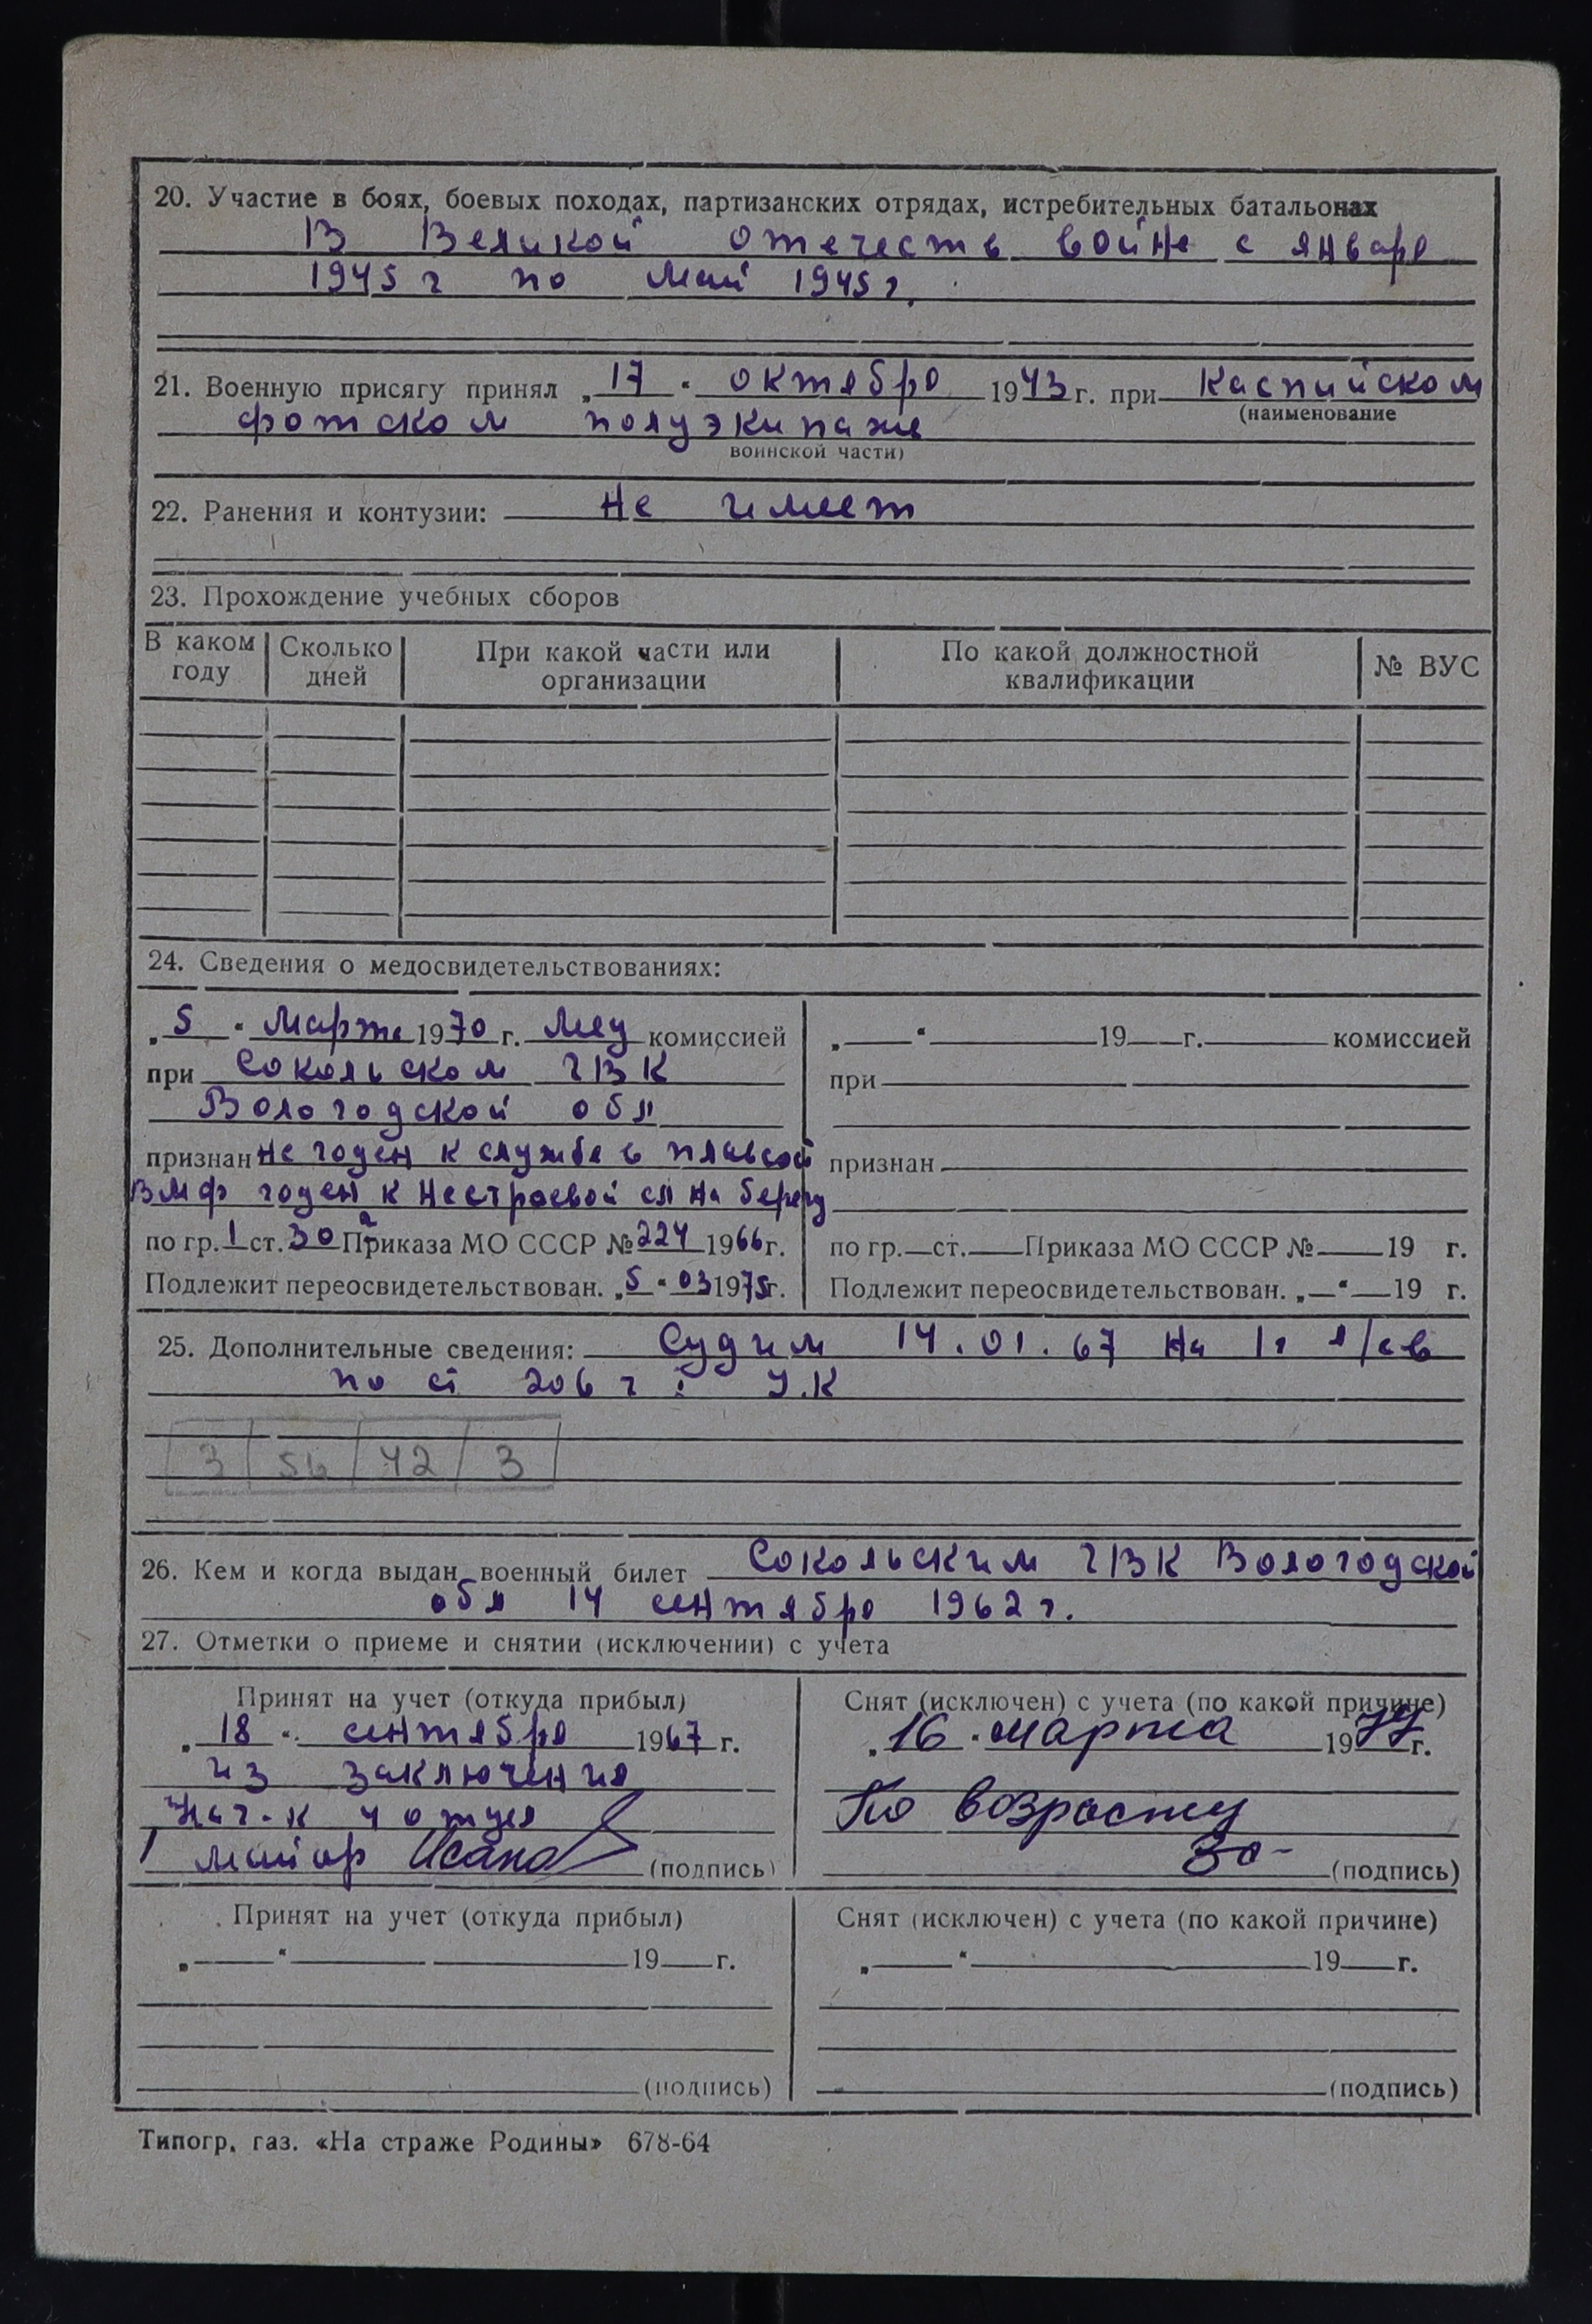 20. Участие в боях, боевых походах, партизанских отрядах, истребительных батальонах
В Великой отечеств войне с января
1945 г по май 1945 г.
21. Военную присягу принял „17" октября 1943 г. при Каспийском
(наименование
фотском полуэкипаже
воинской части)
22. Ранения и контузии: Не имеет
23. Прохождение учебных сборов
В каком году Сколько дней При какой части или организации По какой должностной квалификации № ВУС
24. Сведения о медосвидетельствованиях:
„5" Марта 1970 г. Мед комиссией
при Сокольском ГВК
Вологодской обл
признан не годен к службе в плавсост
ВМФ годен к нестроевой сл на берегу
по гр. 1 ст. 30 а Приказа МО СССР № 224 1966 г.
Подлежит переосвидетельствован. „5" 03 1975 г.
„ " 19 г. комиссией
при
признан
по гр. ст. Приказа МО СССР № 19 г.
Подлежит переосвидетельствован. „ " 19 г.
25. Дополнительные сведения: Судим 14.01.67 на 1г л/св
по ст 206 ч У.К
3 56 42 3
26. Кем и когда выдан военный билет Сокольским ГВК Вологодской
обл 14 сентября 1962 г.
27. Отметки о приеме и снятии (исключении) с учета
Принят на учет (откуда прибыл)
„18" сентября 1967 г.
из заключения
Нач-к 4 отдел
майор (подпись)
Снят (исключен) с учета (по какой причине)
„16" марта 1977 г.
По возрасту
(подпись)
Принят на учет (откуда прибыл)
„ " 19 г.
(подпись)
Снят (исключен) с учета (по какой причине)
„ " 19 г.
(подпись)
Типогр. газ. «На страже Родины» 678-64